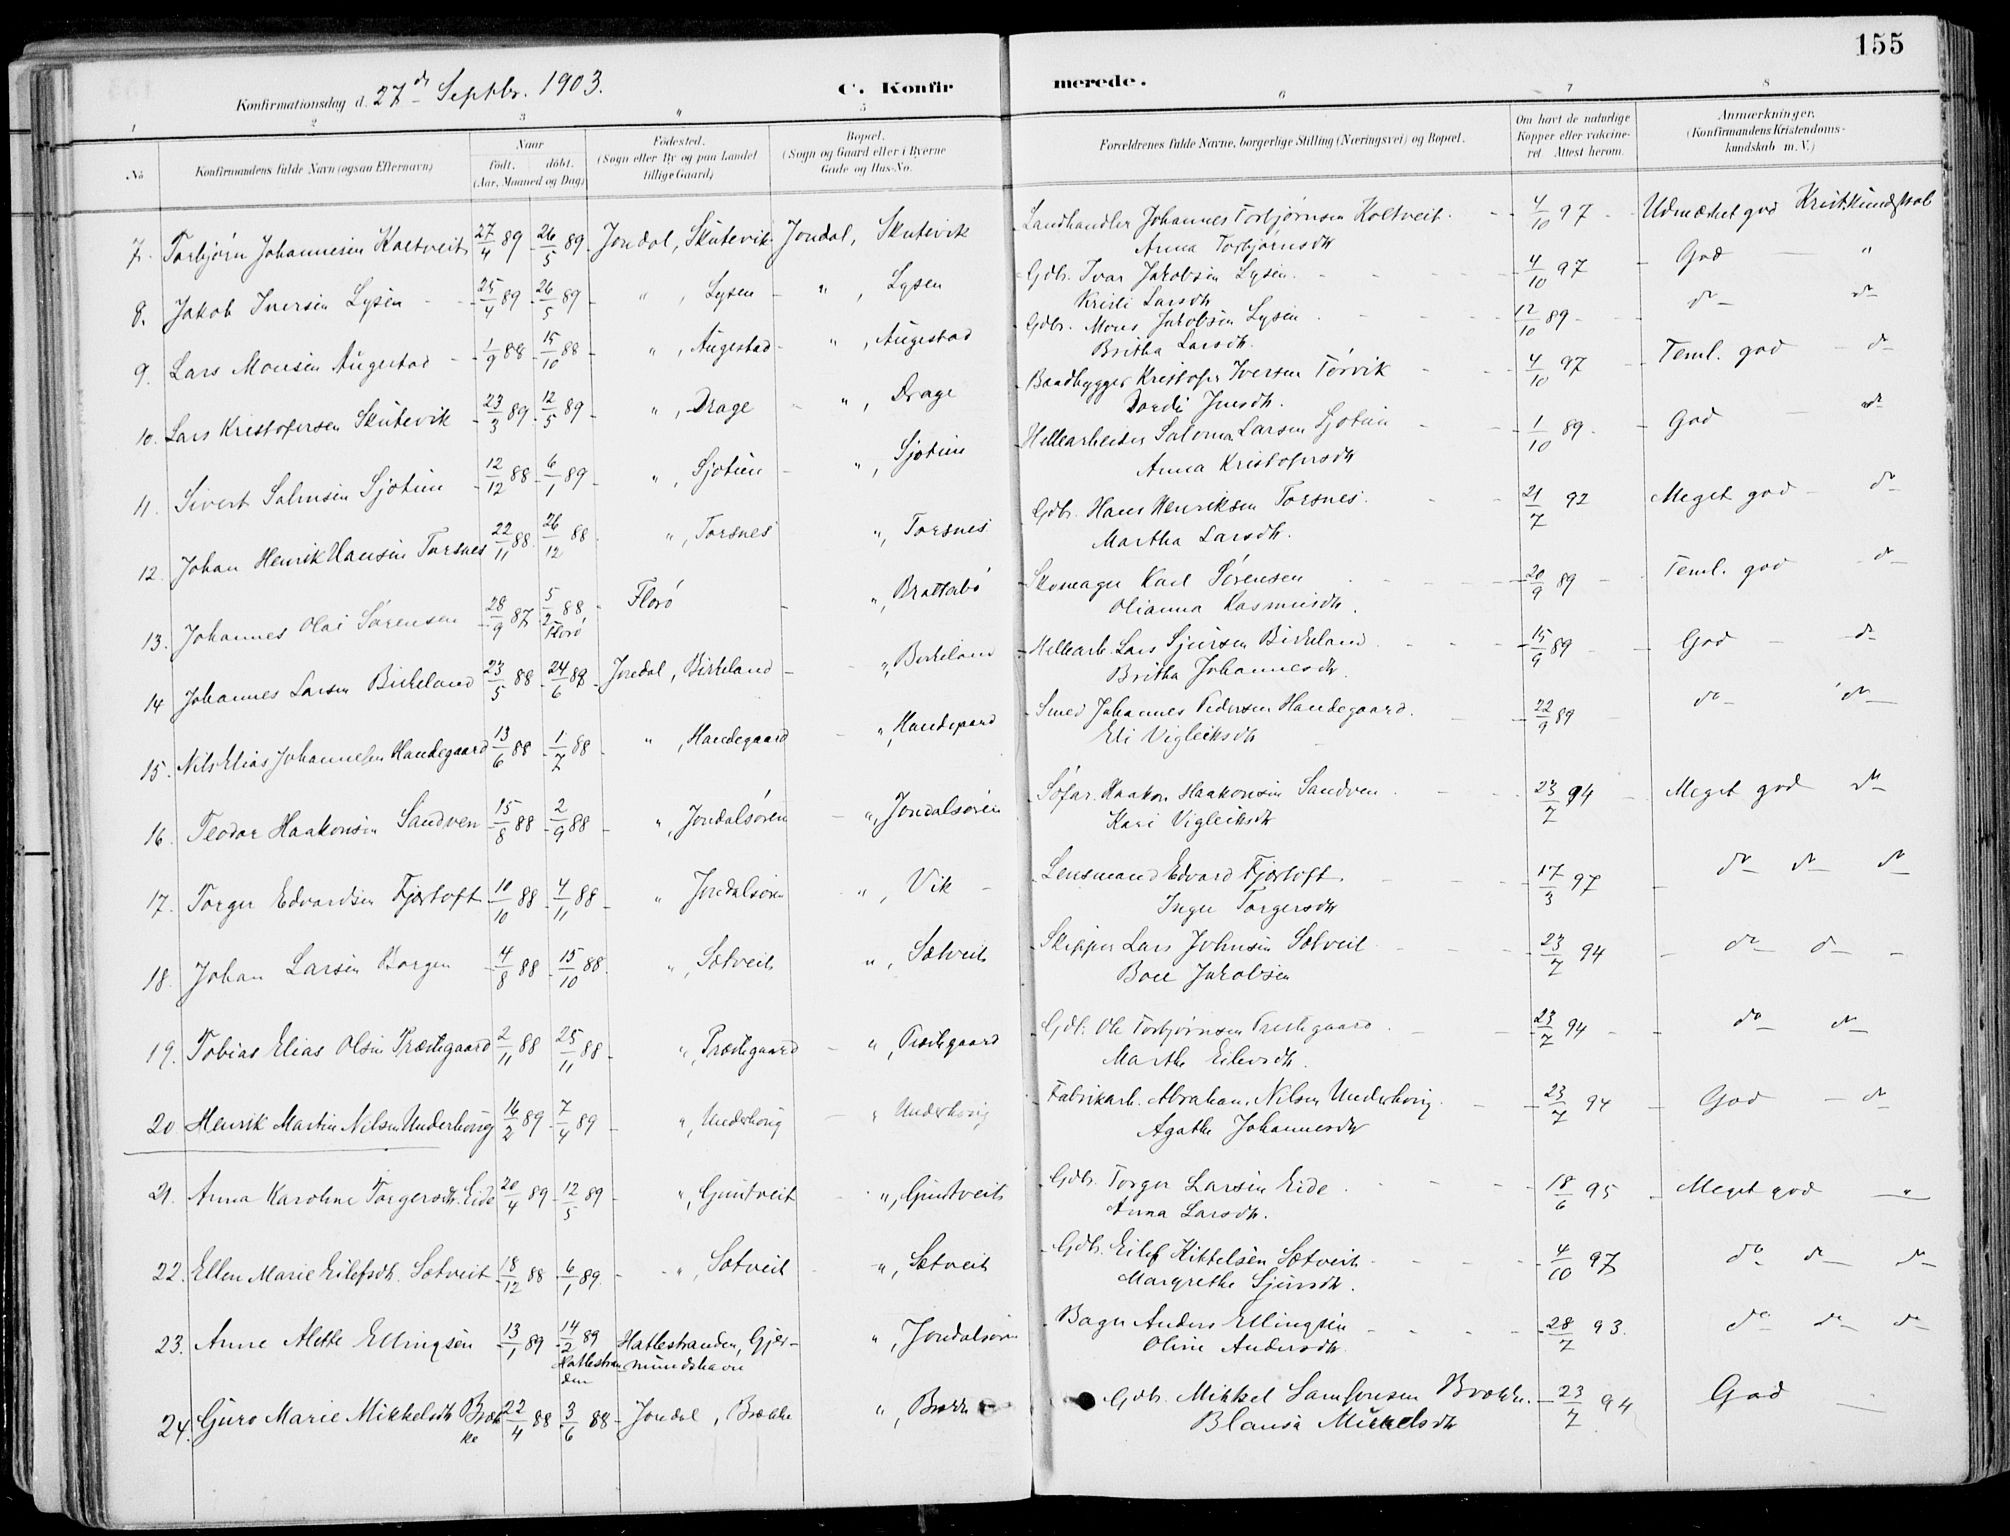 155
Konfirmationsdag d. 27de Septbr. 1903.
C. Konfirmerede.
1 2 3 4 5 6 7 8
No
Konfirmandens fulde Navn (ogsaa Efternavn)
Naar
født. døbt.
(Aar, Maaned og Dag)
Fødested.
(Sogn eller By og paa Landet
tillige Gaard)
Bopæl.
(Sogn og Gaard eller i Byerne
Gade og Hus-No.
Forældrenes fulde Navne, borgerlige Stilling (Næringsvei) og Bopæl.
Om havt de naturlige
Kopper eller vakcine-
ret Attest herom.
Anmærkninger.
(Konfirmandens Kristendoms-
kundskab m. V.)
7. Torbjørn Johannesen Koltveit 27/4 89 26/5 89 Jondal, Skutevik Jondal, Skutevik Landhandler Johannes Torbjørnsen Koltveit. 4/10 97 Udmærket god Krist.kundskab
Anna Torbjørnsdtr
8. Jakob Iversen Lysen 25/4 89 26/5 89 " , Lysen " , Lysen Gdbr. Ivar Jakobsen Lysen. 4/10 97 God "
Kristi Larsdtr
9. Lars Monsen Augestad 1/9 88 15/10 88 " , Augestad " , Augestad Gdbr. Mons Jakobsen Lysen 12/10 89 do do
Britha Larsdtr.
10. Lars Kristofersen Skutevik 23/3 89 12/5 89 " , Drage " , Drage Baadbygger Kristofer Iversen Tørvik 4/10 97 Teml. god do
Dordi Jensdtr.
11. Sivert Salmsen Sjotun 12/12 88 6/1 89 " , Sjotun " , Sjotun Hellearbeider Salomon Larsen Sjotun 1/10 89 God do
Anna Kristofersdtr
12. Johan Henrik Hansen Torsnes 22/11 88 26/12 88 " , Torsnes " , Torsnes Gdbr. Hans Henriksen Torsnes. 21/7 92 Meget god do
Martha Larsdtr.
13. Johannes Olai Sørensen 28/9 87 5/2 88 Florø Florø " , Brattabø Skomager Karl Sørensen 20/9 89 Teml. god do
Olianna Rasmusdtr.
14 Johannes Larsen Birkeland 23/5 88 24/6 88 Jondal, Birkeland " , Birkeland Hellearb. Lars Sjursen Birkeland 15/9 89 God do
Britha Johannesdtr.
15. Nils Elias Johannesen Handegaard 13/6 88 1/7 88 " , Handegaard " , Handegaard Smed Johannes Pedersen Handegaard. 22/9 89 do do
Eli Vigleiksdtr
16. Teodor Haakonsen Sandven 15/8 88 2/9 88 " , Jondalsøren " , Jondalsøren Søfar. Haakon Haakonsen Sandven. 23/7 94 Meget god do
Kari Vigleiksdtr
17. Torger Edvardsen Fjørtoft 10/10 88 4/11 88 " Jondalsøren " , Vik Lensmand Edvard Fjørtoft. 17/3 97 do do do
Inger Torgersdtr
18. Johan Larsen Borgen 4/8 88 15/10 88 " , Sætveit " , Sætveit Skipper Lars Johnsen Sætveit 23/7 94 do do
Boel Jakobsen
19. Tobias Elias Olsen Præstegaard 2/11 88 25/11 88 " , Præstegaard " , Præstegaard Gdb. Ole Torbjørnsen Prestegaard. 23/7 94 do do
Marthe Eilevsdtr.
20 Henrik Martin Nilsen Underhoug 16/2 89 7/4 89 " , Underhoug " Underhoug Fabrikarb. Abraham Nilsen Underhoug. 23/7 94 God do
Agathe Johannesdtr
21. Anna Karoline Torgersdtr. Eide 20/4 89 12/5 89 " , Guntveit " , Guntveit Gdbr. Torger Larsen Eide 18/6 95 Meget god "
Anna Larsdtr.
22. Ellen Marie Eilefsdtr. Sætveit 18/12 88 6/1 89. " , Sætveit " , Sætveit Gdbr. Eilef Kittelsen Sætveit 4/10 97 do do do
Margrethe Sjursdtr.
23. Anne Alette Ellingsen 13/1 89 14/2 89 Hatlestranden Hatlestranden, Gjermundshavn " , Jondalsøren Bager Anders Ellingsen 28/7 93. do do do
Oline Andersdtr.
24. Guro Marie Mikkelsdtr Brække 22/4 88 3/6 88 Jondal, Brække " , Brække Gdbr. Mikkel Samsonsen Brække. 23/7 94 God
Blansa Mikkelsdtr